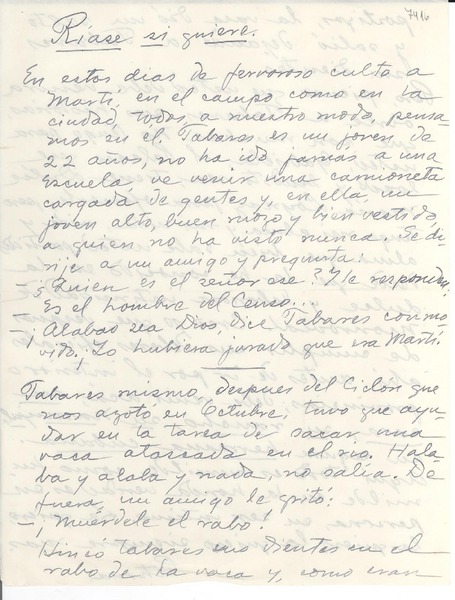 7416
Ríase si quiere.
En estos dias de fervoroso culto a
Martí, en el campo como en la
ciudad, todos, a nuestro modo, pensa-
mos en el. Tabares es un joven, de
22 años, no ha ido jamas a una
Escuela, ve venir una camioneta
cargada de gentes y, en ella, un
joven alto, buen mozo y bien vestido,
a quien no ha visto nunca. Se di-
rije a un amigo y pregunta:
- ¿Quien es el señor ese? Y le responden:
- Es el hombre del Censo...
- ¡Alabao sea Dios, dice Tabares conmo-
vido. ¡Lo hubiera jurado que era Martí
Tabares mismo, despues del Ciclón que
nos azoto en Octubre, tuvo que ayu-
dar en la tarea de sacar una
vaca atascada en el rio. Hala-
ba y alaba y nada, no salía. De
fuera, un amigo le gritó:
- ¡Muérdele el rabo!
Hincó Tabares sus dientes en el
rabo de la vaca y, como eran